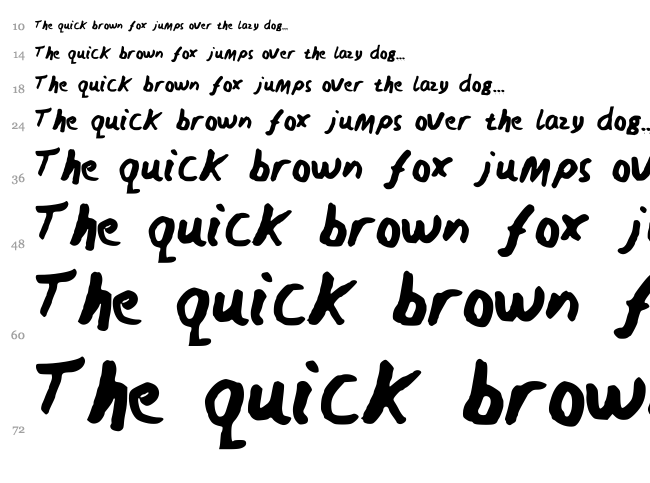 10 The quick brown fox jumps over the lazy dog...
14 The quick brown fox jumps over the lazy dog...
18 The quick brown fox jumps over the lazy dog...
24 The quick brown fox jumps over the lazy dog..
36 The quick brown fox jumps ov
48 The quick brown fox j
60 The quick brown f
72 The quick brow